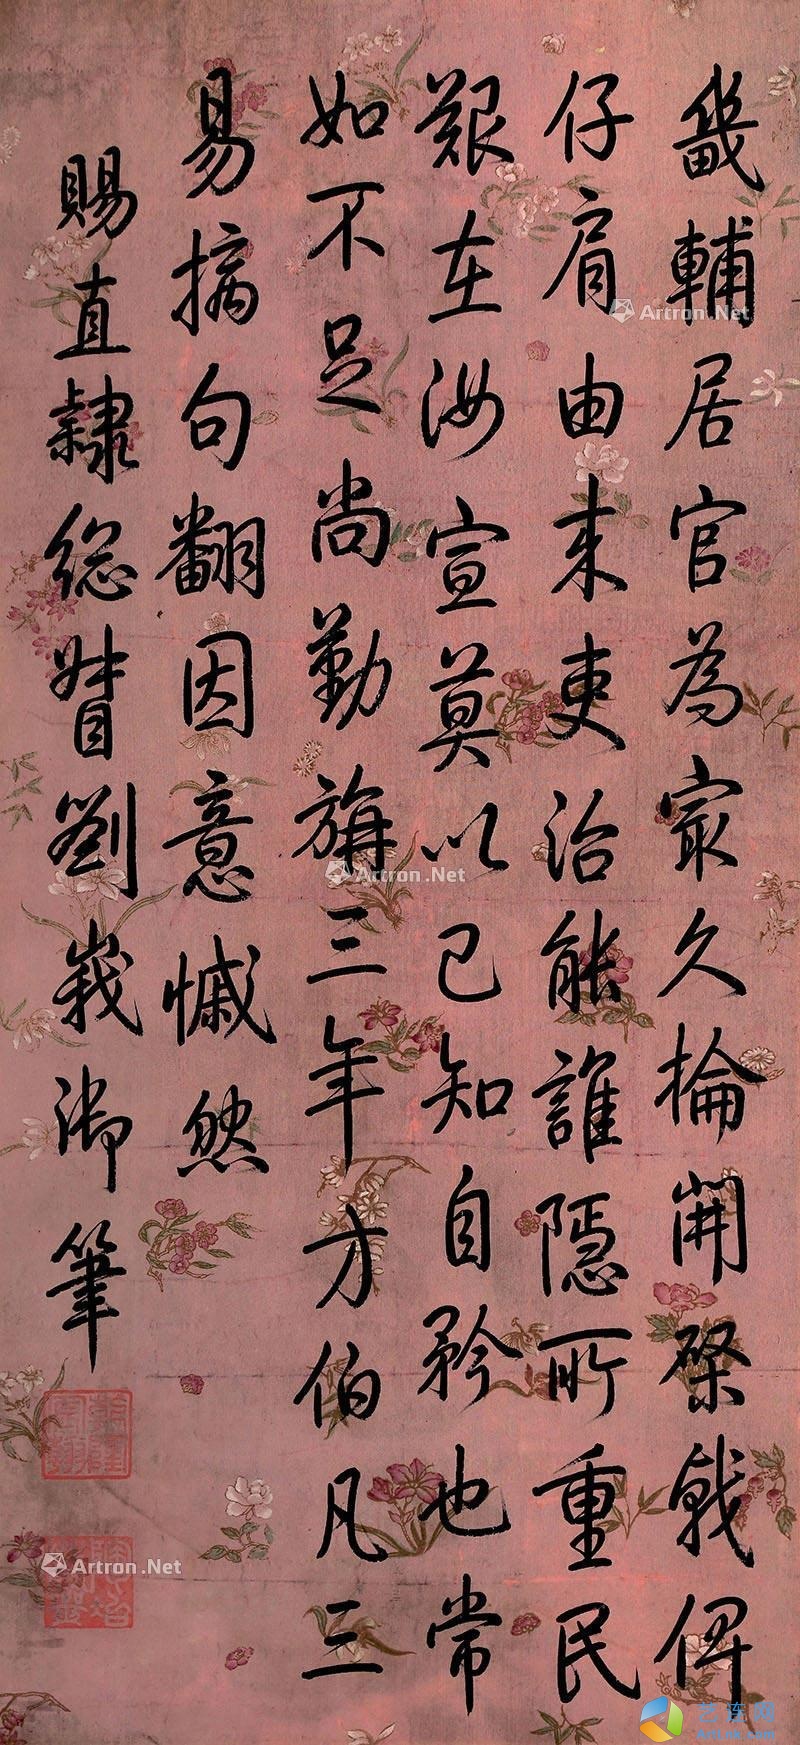 畿輔居官為最久掄開棨戟俾
仔肩由来吏治能誰隱所重民
艱在汝宣莫以已知自矜也常
如不足尚勤旃三年方伯凡三
易摛句翻因意慽然
賜直隸總督劉峩御筆
Artron.Net
Artron.Net
Artron.Net